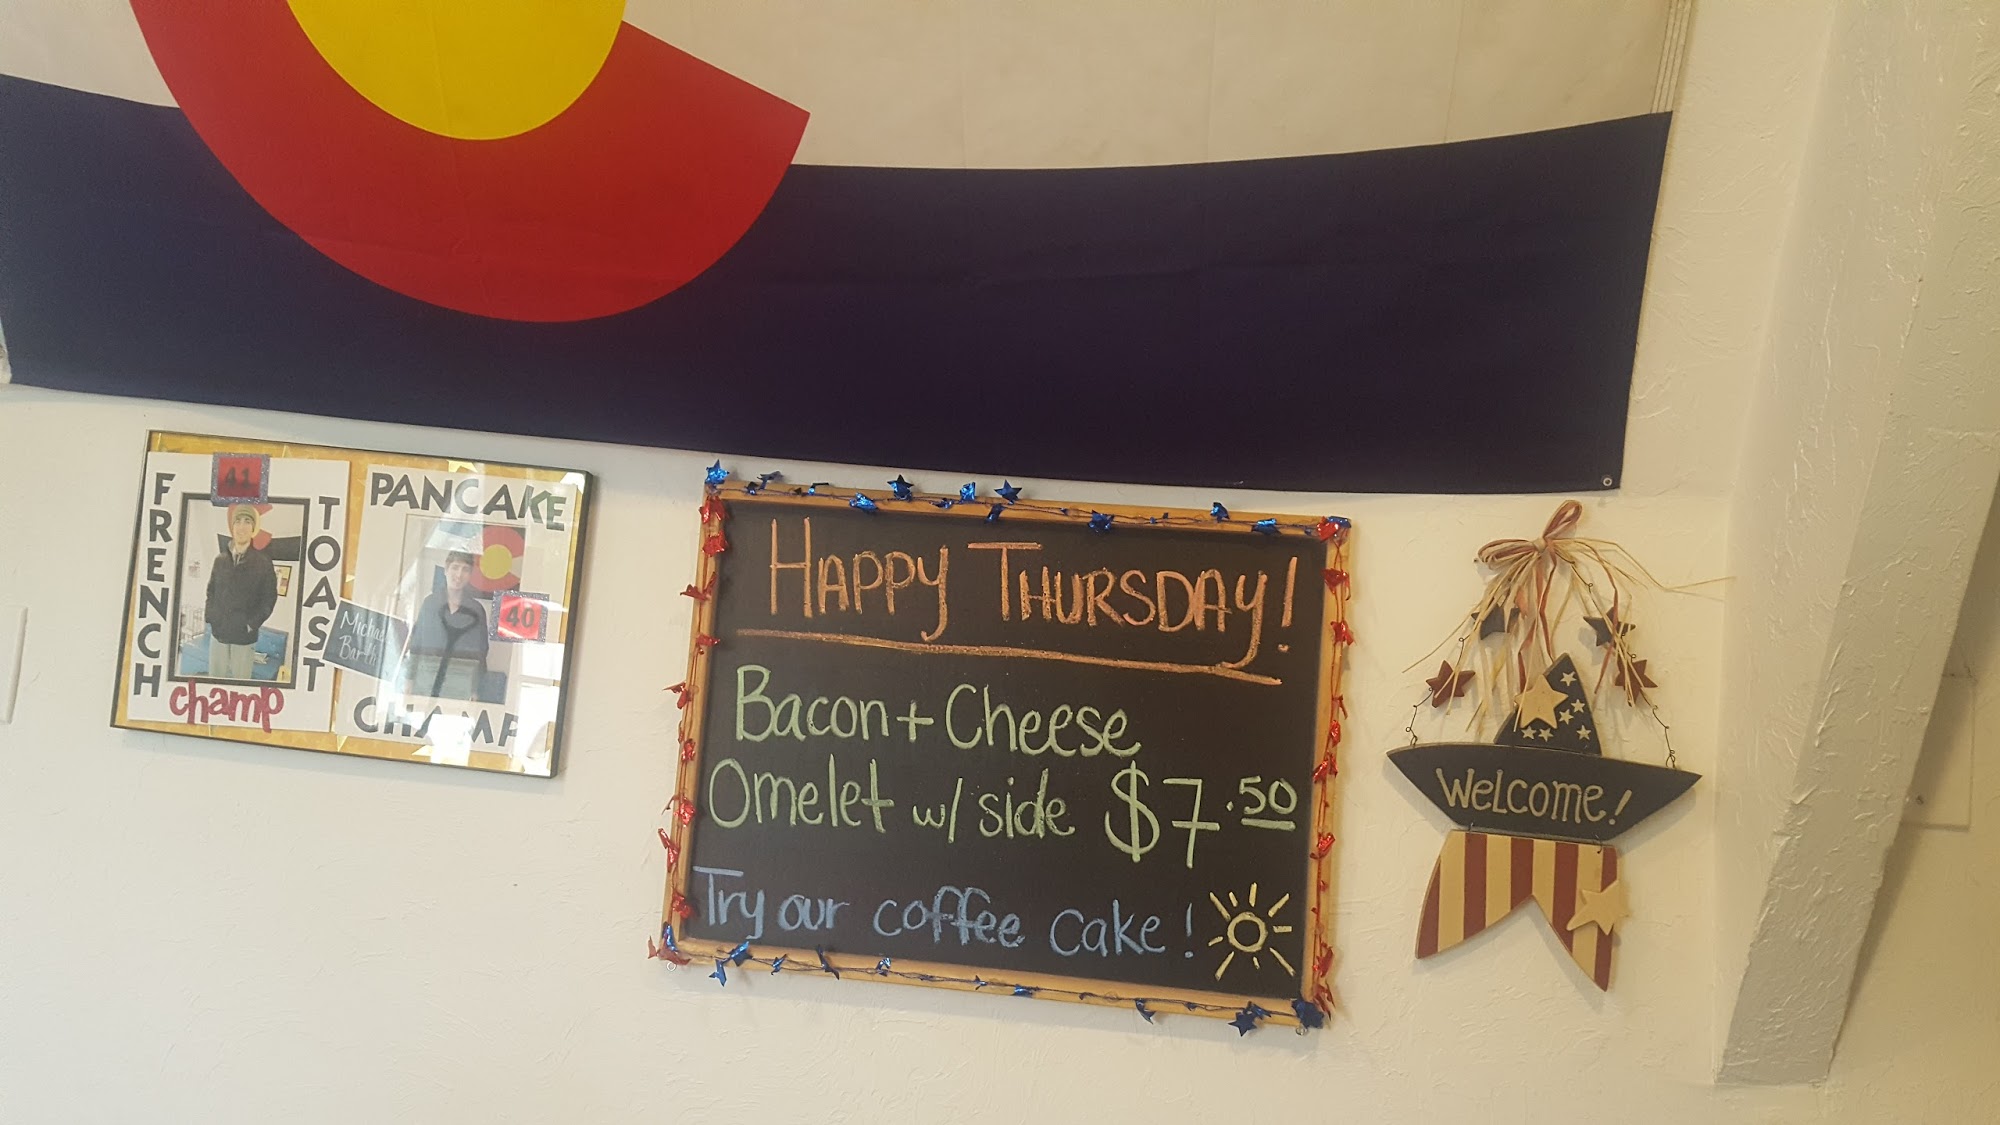 FRENCH
41
TOAST
champ
PANCAKE
40
Michael
Barth
CHAMP
HAPPY THURSDAY!
Bacon + Cheese
Omelet w/ side $7.50
Try our coffee cake!
WeLcome!